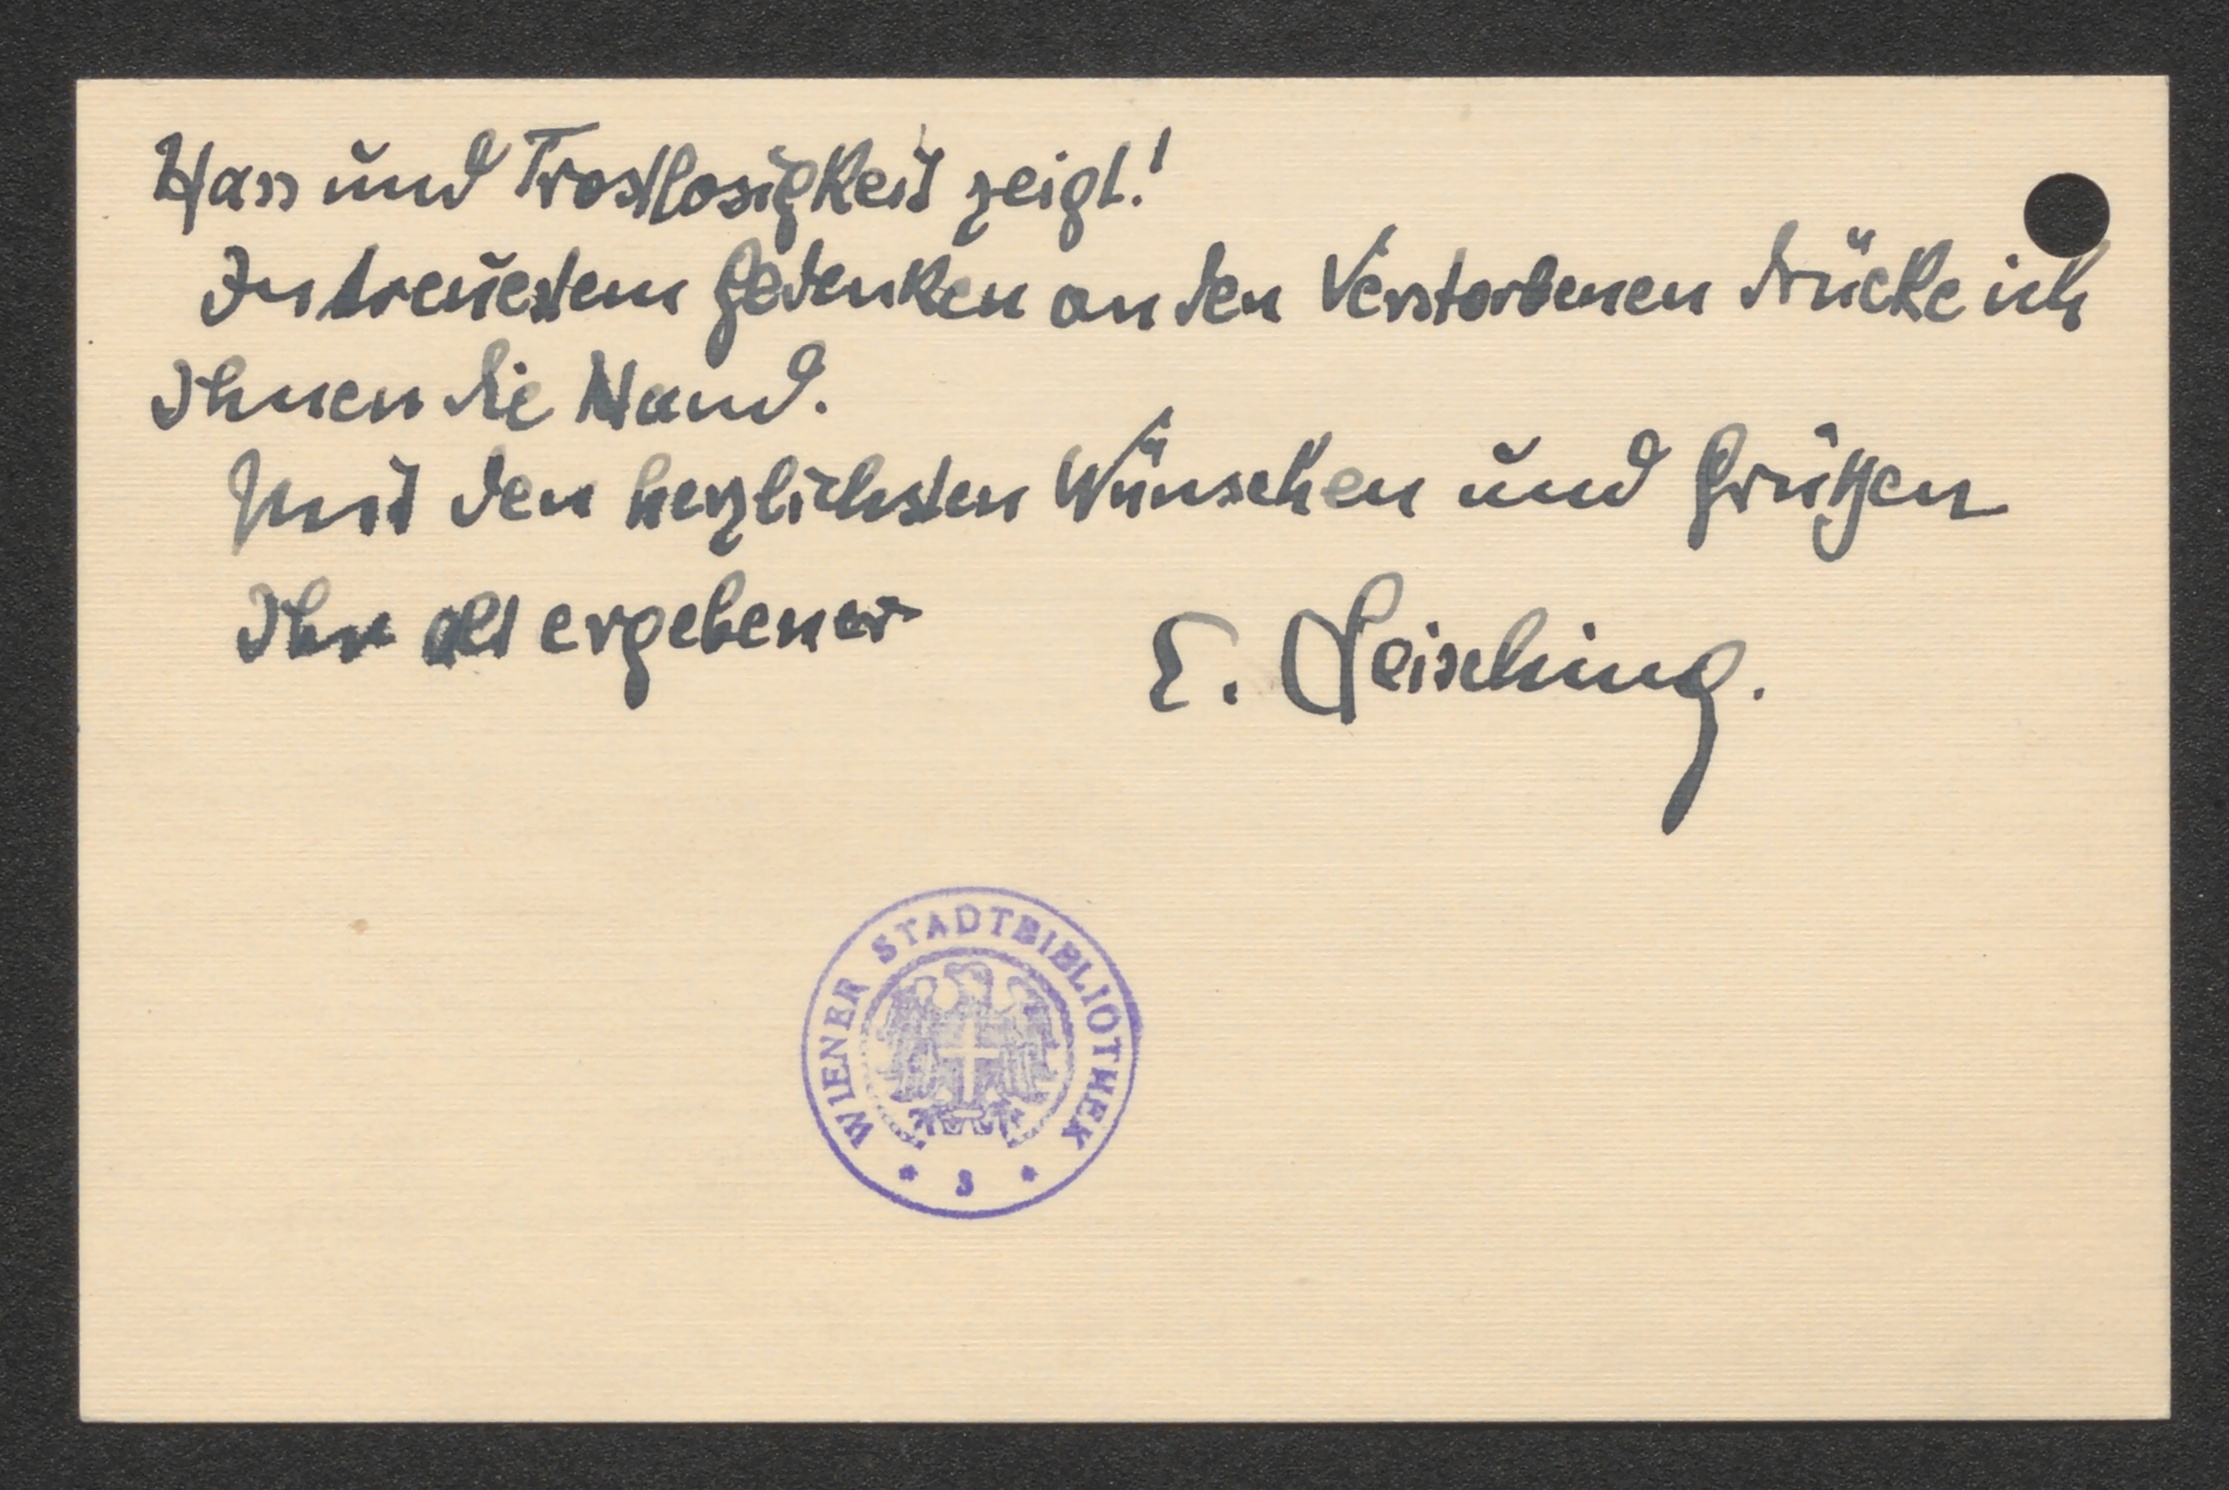 Hass und Trostlosigkeit zeigt!
In treuestem Gedenken an den Verstorbenen drücke ich
Ihnen die Hand.
Mit den herzlichsten Wünschen und Grüßen
Ihr alt ergebener
E. Leisching.
WIENER STADTBIBLIOTHEK
* 3 *